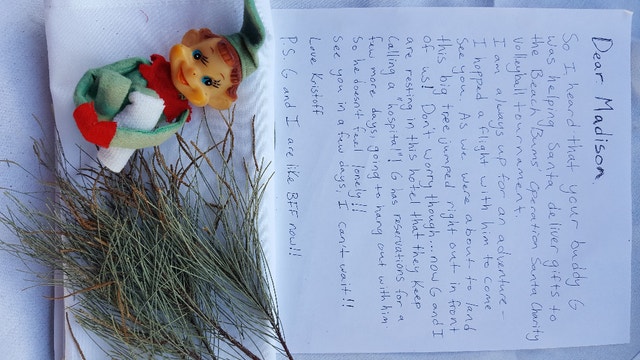 Dear Madison,
So I heard that your buddy G
was helping Santa deliver gifts to
the Beach Bums' Operation Santa Charity
Volleyball tournament.
I am always up for an adventure -
I hopped a flight with him to come
see you. As we were about to land
this big tree jumped right out in front
of us! Don't worry though... now G and I
are resting in this hotel that they keep
calling a "hospital"! G has reservations for a
few more days, going to hang out with him
so he doesnt feel lonely!!
see you in a few days, I can't wait!!
Love Kristoff
P.S. G and I are like BFF now!!